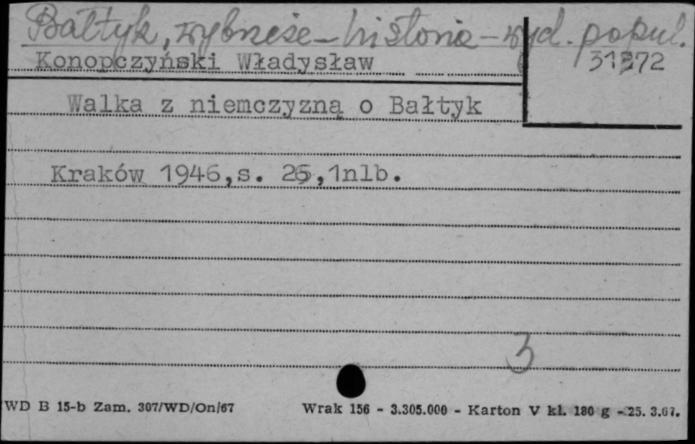 Bałtyk, wybrzeże - historia - wyd. popul.
Konopczyński Władysław
31372
Walka z niemczyzną o Bałtyk
Kraków 1946,s. 26,1nlb.
3
WD B 15-b Zam. 307/WD/On/67 Wrak 156 - 3.305.000 - Karton V kl. 180 g - 25. 3.67.